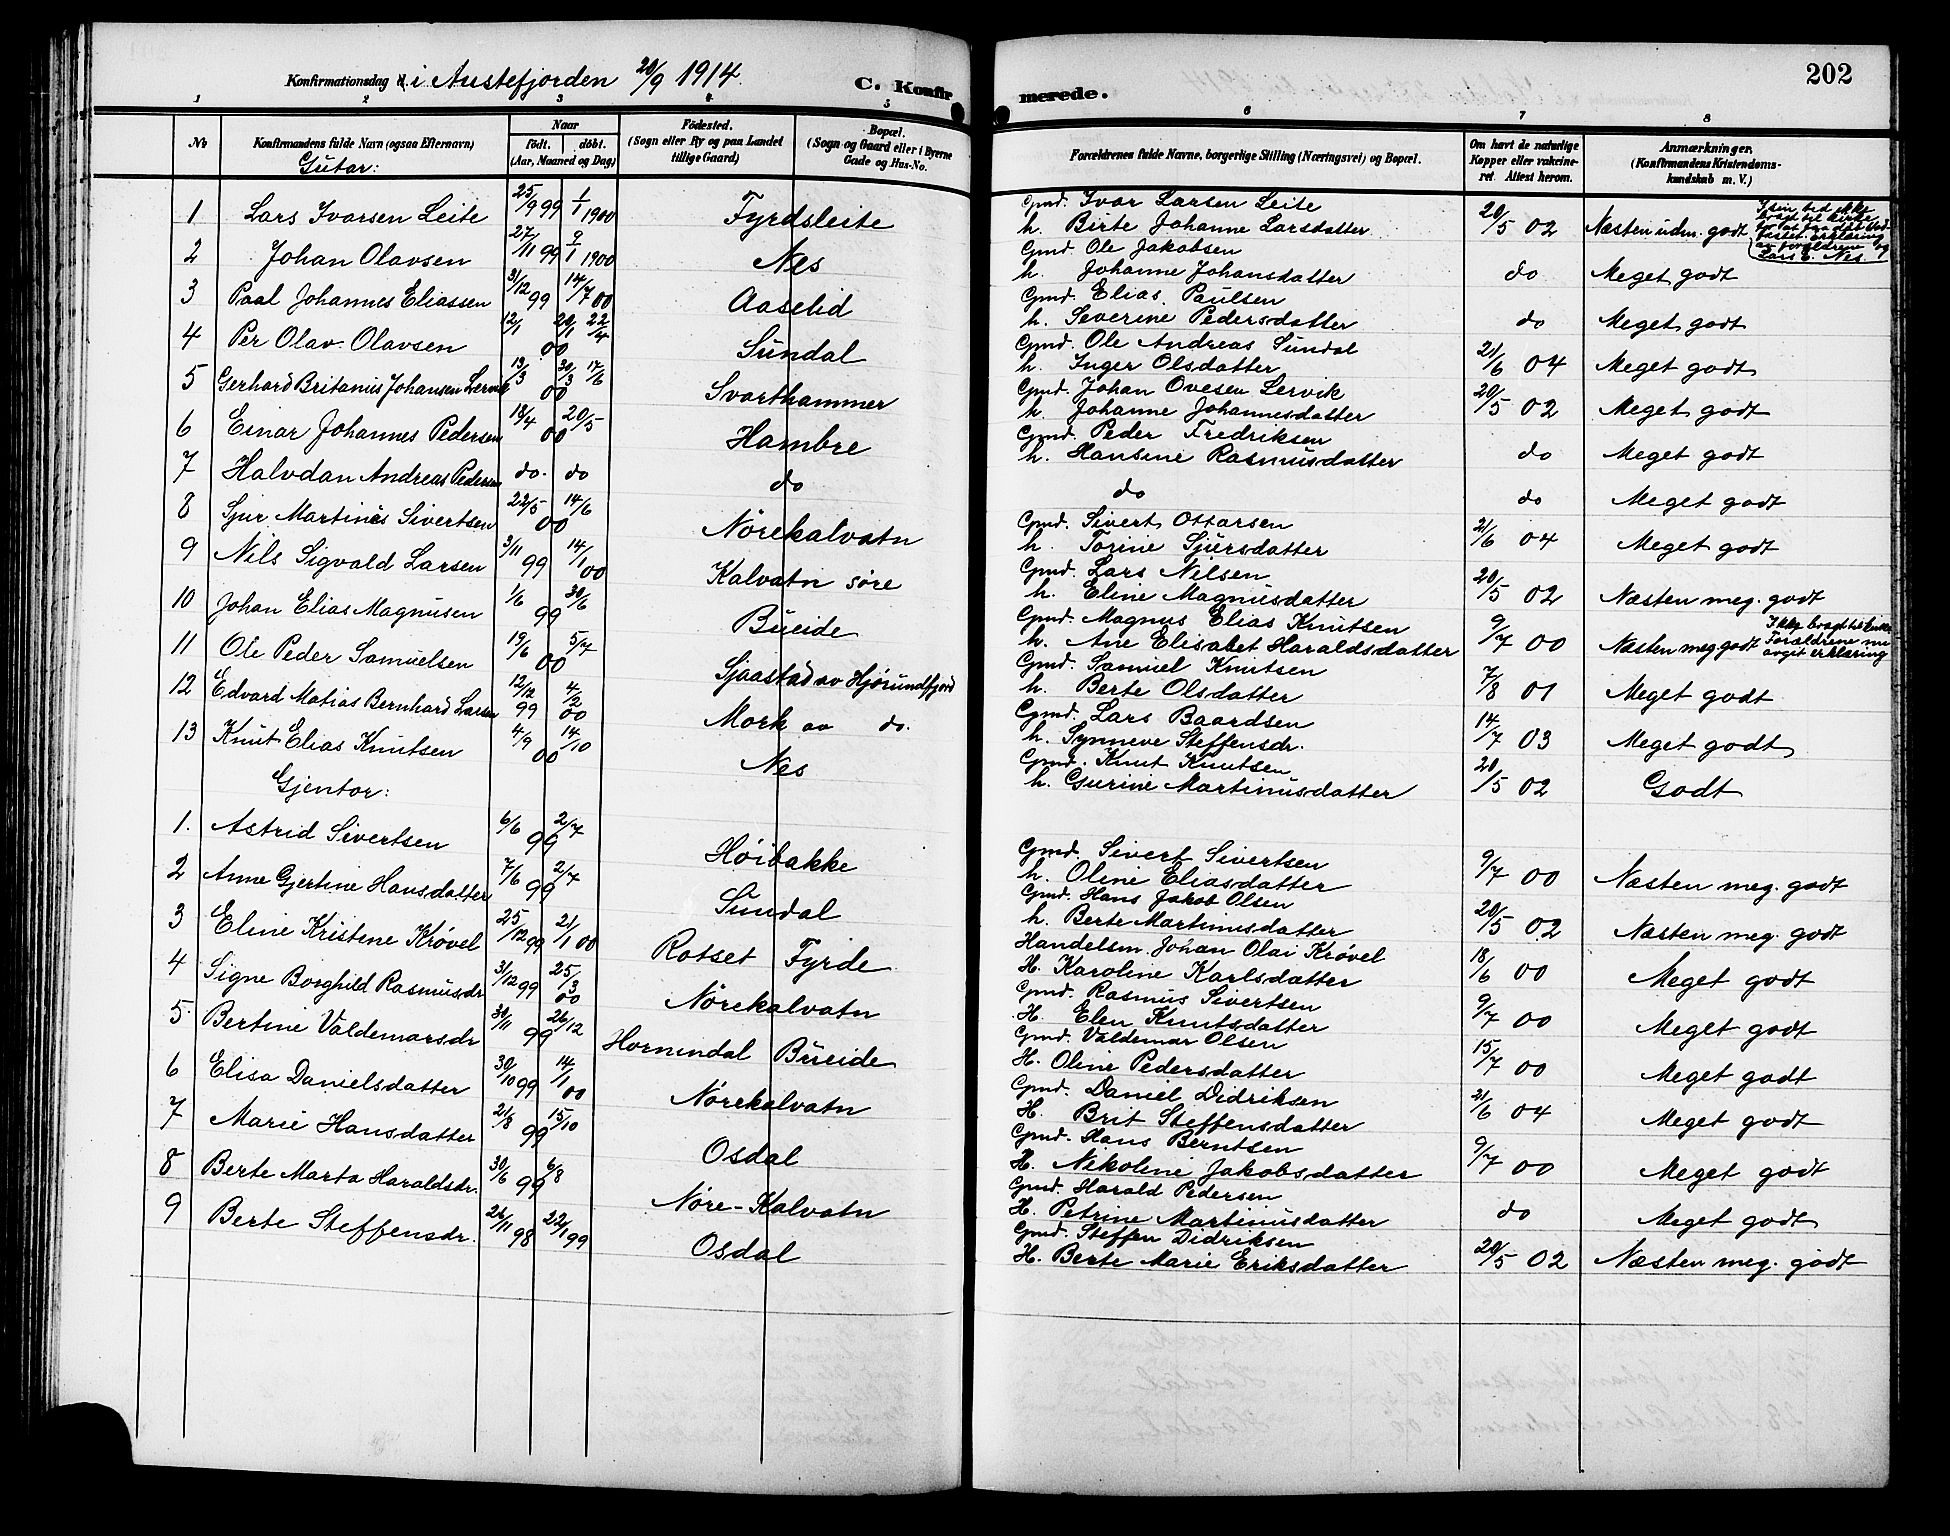 Konfirmationsdag i Austefjorden 20/9 1914.
C. Konfirmerede.
202
1 2 3 4 5 6 7 8
No
Konfirmandens fulde Navn (ogsaa Efternavn)
Naar
født. døbt.
(Aar, Maaned og Dag)
Fødested.
(Sogn eller By og paa Landet tillige Gaard)
Bopæl.
(Sogn og Gaard eller i Byerne Gade og Hus-No.
Forældrenes fulde Navne, borgerlige Stilling (Næringsvei) og Bopæl.
Om havt de naturlige Kopper eller vaksineret. Attest herom.
Anmærkninger.
(Konfirmandens Kristendomskundskab m. V.)
Gutar:
1 Lars Ivarsen Leite 25/9 99 1/1 1900 Fyrdsleite Gmd. Ivar Larsen Leite h. Birte Johanne Larsdatter 20/5 02 Næsten udm. godt
2 Johan Olavsen 27/11 99 9/1 1900 Nes Gmd Ole Jakobsen h. Johanne Johansdatter do Meget godt
3 Paal Johannes Eliassen 31/12 99 14/7 00 Aaselid Gmd. Elias Paulsen h. Severine Pedersdatter do Meget godt
4 Per Olav Olavsen 12/1 00 20/1 22/4 Sundal Gmd. Ole Andreas Sundal h. Inger Olsdatter 21/6 04 Meget godt
5 Gerhard Britanus Johansen Lervik 13/3 00 30/3 17/6 Svarthammer Gmd. Johan Ovesen Lervik h. Johanne Johannesdatter 20/5 02 Meget godt
6 Einar Johannes Pedersen 18/4 00 20/5 Hambre Gmd. Peder Fredriksen h. Hansine Rasmusdatter do Meget godt
7 Halvdan Andreas Pedersen do. do do do do Meget godt
8 Sjur Martinus Sivertsen 22/5 00 14/6 Nørekalvatn Gmd. Sivert Ottarsen h. Torine Sjursdatter 21/6 04 Meget godt
9 Nils Sigvald Larsen 3/11 99 14/1 00 Kalvatn søre Gmd. Lars Nilsen h. Eline Magnusdatter 20/5 02 Næsten meg. godt
10 Johan Elias Magnusen 1/6 99 30/6 Bueide Gmd. Magnus Elias Knutsen h. Ane Elisabet Haraldsdatter 9/7 00 Næsten meg. godt
11 Ole Peder Samuelsen 19/6 00 5/7 Sjaastad av Hjørundfjord Gmd. Samuel Knutsen h. Berte Olsdatter 7/8 01 Meget godt
12 Edvard Matias Bernhard Larsen 12/12 99 4/2 00 Mork av do. Gmd. Lars Baardsen h. Synneve Steffensdr. 14/7 03 Meget godt
13 Knut Elias Knutsen 4/9 00 14/10 Nes Gmd. Knut Knutsen h. Gurine Martinusdatter 20/5 02 Godt
Gjentor:
1. Astrid Sivertsen 6/6 99 2/7 Høibakke Gmd. Sivert Sivertsen h. Oline Eliasdatter 9/7 00 Næsten meg. godt
2 Anne Gjertine Hansdatter 7/6 99 2/7 Sundal Gmd. Hans Jakob Olsen h. Berte Martinusdatter 20/5 02 Næsten meg. godt
3 Eline Kristene Krøvel 25/12 99 21/1 00 Rotset Fyrde Handelsm. Johan Olai Krøvel H. Karoline Karlsdatter 18/6 00 Meget godt
4 Signe Borghild Rasmusdr 31/12 99 25/3 00 Nørekalvatn Gmd. Rasmus Sivertsen H. Elen Knutsdatter 9/7 00 Meget godt
5. Bertine Valdemarsdr 30/11 99 26/12 Hornindal Bueide Gmd. Valdemar Olsen H. Oline Pedersdatter 15/7 00 Meget godt
6 Elisa Danielsdatter 30/10 99 14/1 00 Nørekalvatn Gmd. Daniel Didriksen H. Brit Steffensdatter 21/6 04 Meget godt
7 Marie Hansdatter 21/8 99 15/10 Osdal Gmd. Hans Berntsen H. Nikoline Jakobsdatter 9/7 00 Meget godt
8 Berte Marta Haraldsdr. 30/6 99 6/8 Nøre-Kalvatn Gmd. Harald Pedersen H. Petrine Martinusdatter do Meget godt
9 Berte Steffensdr. 26/11 98 22/1 99 Osdal Gmd. Steffen Didriksen H. Berte Marie Eriksdatter 20/5 02 Næsten meg. godt